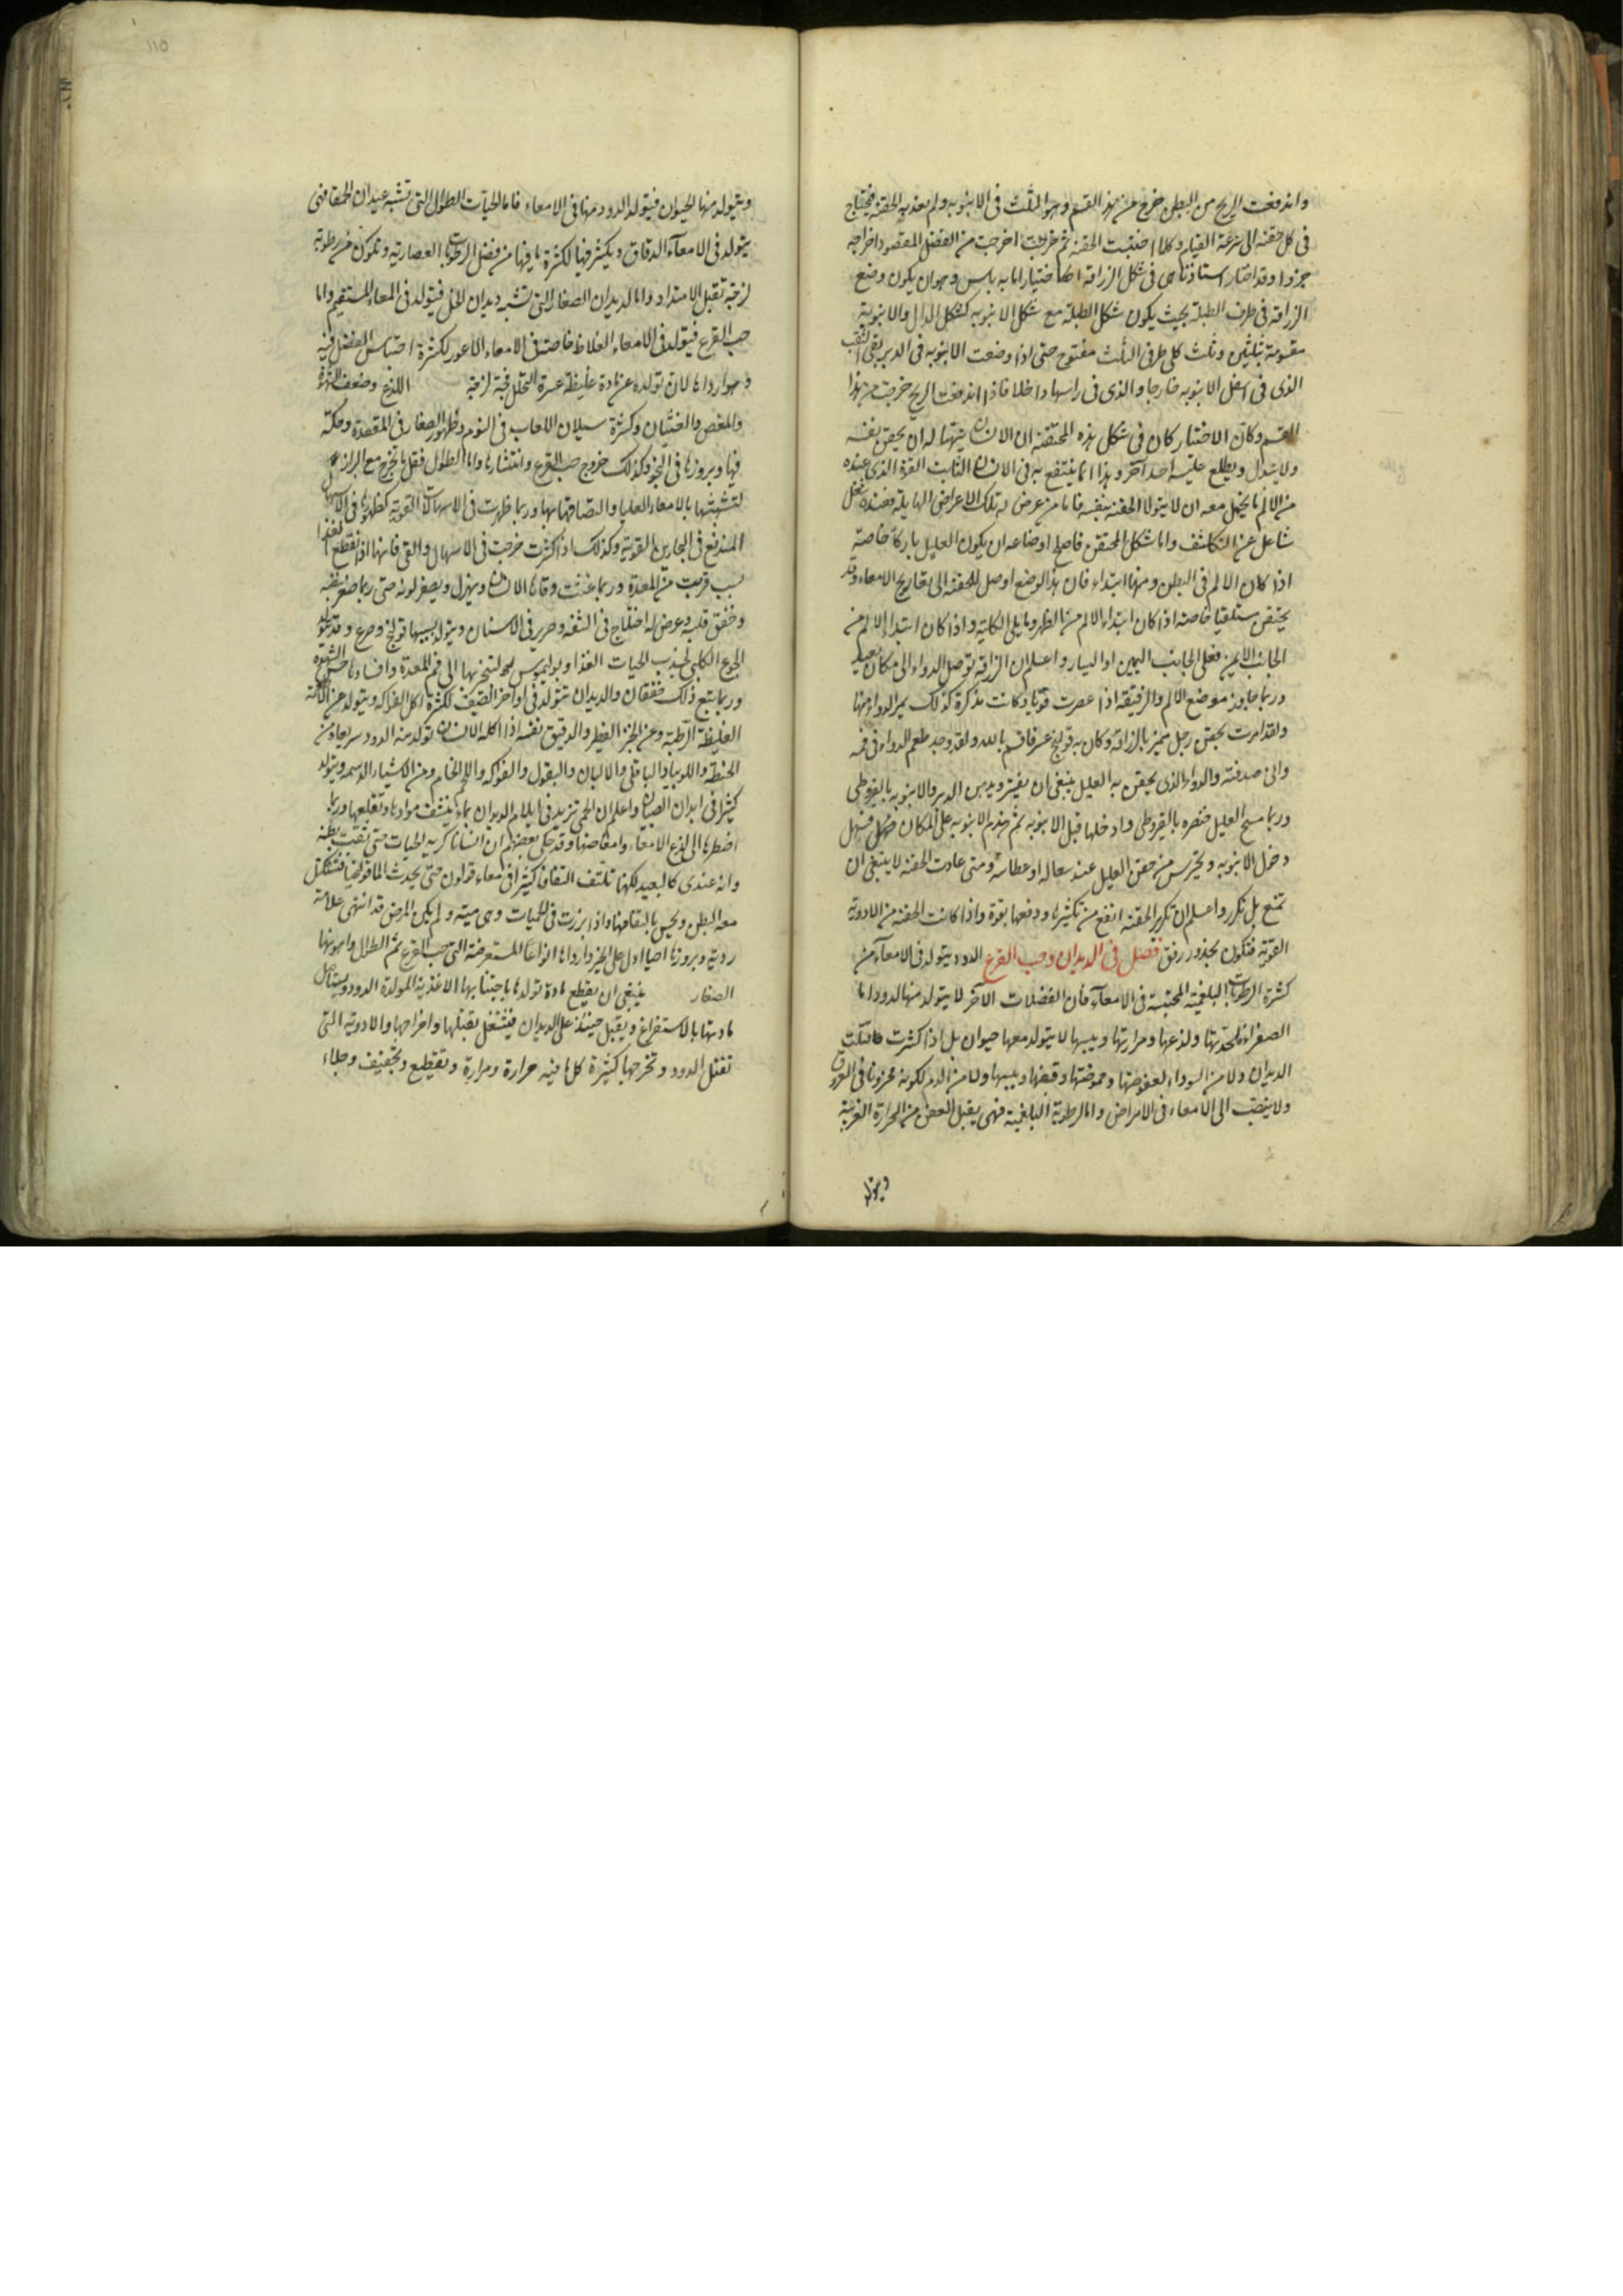 واندفعت الريح من البطن خرج من هذا القسم وهو المثلث فى الانبوبه ولم يعد به الحقنه فيحتاج
فى كل حقنه الى سرعة القيام وكلما احتقنت الحقنه ثم خرجت اخرجت من الفضل المقصود اخراجه
جزوا وقد اختار استاذنا فى شكل الزراقه اختيارا ما به باس وهو ان يكون وضع
الزراقه فى طرف الطبلة بحيث يكون شكل الطبلة مع شكل الانبوبه كشكل الدال والانبوبة
مقسومة بثلثين وثلث كلى طرفى الثلث مفتوح حتى اذا وضعت الانبوبه فى الدبر يبقى الثقب
الذى فى اسفل الانبوبه خارجا والذى فى راسها داخلا فاذا اندفعت الريح خرجت من هذا
القسم وكان الاختيار كان فى شكل هذه المحقنه ان الانسان يتهيا له ان يحقن نفسه
ولا يتبدل ويطلع عليه احد آخر وهذا انما ينتفع به فى الانسان الثابت القوة الذى عنده
من الالم ما يحتمل معه ان لا يتولا الحقنه بنفسه فاما من عرض له تلك الاعراض الهايلة فعنده شغل
شاغل عن التكاشف واما شكل المحتقن فاصلح اوضاعه ان يكون العليل باركا خاصة
اذا كان الالم فى البطن ومنها ابتداء فان هذا الوضع اوصل للحقنه الى تعاريج الامعاء وقد
يحتقن مستلقيا خاصة اذا كان ابتداء الالم من الظهر ومايلى الكلية واذا كان ابتداء الالم من
الجانب الايمن فعلى الجانب اليمين او اليسار واعلم ان الزراقه توصل الدواء الى مكان بعيد
وربما جاوز موضع الالم والزقيقة اذا عصرت قويا وكانت مذكرة كذلك يمر الدواء منها
ولقد امرت بحقن رجل مميز بالزراقه وكان به قولنج عسر فاقسم بالله ولقد وجد طعم الدواء فى فمه
وانى صدقته والدواء الذى يحقن به العليل ينبغى ان يفتر ويدهن الدبر والانبوبه بالقيروطى
وربما مسح العليل خنصره بالقيروطى وادخلها قبل الانبوبه ثم هندم الانبوبه على المكان فيسهل
دخول الانبوبه ويحترس من حقن العليل عند سعاله او عطاسه ومتى عادت الحقنه لا ينبغى ان
تمنع بل تكرر واعلم ان تكرير الحقنه انفع من تكثيرها ودفعها بقوة واذا كانت الحقنه من الادوية
القوية فتكون بحذور رفق فصل فى الديدان وحب القرع الدود يتولد فى الامعاء من
كثرة الرطوبات البلغمية المحتبسة فى الامعاء فان الفضلات الاخر لا يتولد منها الدود اما
الصفراء فلحدتها ولذعها ومرارتها ويبسها لا يتولد معها حيوان بل اذا كثرت قتلت
الديدان ولا من السوداء لعفوصتها وحموضتها وقبضها ويبسها ولا من الدم لكونه مخزونا فى العروق
ولا ينصب الى الامعاء فى الامراض واما الرطوبة البلغمية فهى يقبل العفن من الحرارة الغريبة
ويتولد
ويتولد منها الحيوان فيتولد الدود منها فى الامعاء فاما الحيات الطوال التى تشبه عيدان الحمقا فهى
يتولد فى الامعاء الدقاق ويكثر فيها لكثرة ما فيها من فضل الرطوبات العصارية وتكون من رطوبة
لزجة تقبل الامتداد واما الديدان الصغار التى تشبه ديدان الخل فيتولد فى المعاء المستقيم واما
حب القرع فيتولد فى الامعاء الغلاظ خاصة فى الامعاء الاعور لكثرة احتباس الفضل فيه
وهو ارداها لان تولده عن مادة غليظة عسرة التحلل فجة لزجة اللذع وضعف الشهوة
والمغص والغثيان وكثرة سيلان اللعاب فى النوم وظهور الصغار فى المقعدة وحكة
فيها وبروزها فى النجو وكذلك خروج حب القرع وانتشارها واما الطوال فقل ما تخرج مع البراز
لتشبثها بالامعاء العليا والتصاقها بها وربما ظهرت فى الاسهالات القوية كظهورها فى الاسهال
المندفع فى البحارين القوية وكذلك اذا كثرت خرجت فى الاسهال والقى فانها اذا انقطع الغذا
بسبب قربت من المعدة وربما عفنت وقاها الانسان ويهزل ويصفر لونه حتى ربما صغر نبضه
وخفق قلبه وعرض له اختلاج فى الشفه وصرير فى الاسنان ويتولد بسببها قولنج وصرع وقد يتولد
الجوع الكلبى لجذب الحيات الغذا وبوليموس لتسخينها الى فم المعدة وافسادها حس الشهوة
وربما يتبع ذلك خفقان والديدان تتولد فى اواخر الصيف لكثرة اكل الفواكه ويتولد عن الاغذية
الغليظة الرطبة وعن الخبز الفطير والدقيق نفسه اذا اكله الانسان تولد منه الدود سريعا ومن
الحنطة واللوبيا والباقلى والالبان والبقول والفواكه واللحم الخام ومن الاشياء الدسمه ويتولد
كثيرا فى ابدان الصبيان واعلم ان الحمى تزيد فى ايلام الديدان بما ينشف موادها وتقلعها وربما
اضطرها الى لذع الامعاء وامغاصها وقد حكى بعضهم ان انسانا كثر به الحيات حتى نقبت بطنه
وانه عندى كالبعيد لكنها تلتف التفافا كثيرا فى معاء قولون حتى يحدث القولنج فتشتكل
معه البطن ويحس بالتفافها واذا برزت فى الحميات وهى ميتة ولم يكن المرض قد انتهى علامة
ردية وبروزها احياء ادل على الخير وارداها انواعا المستعرضة التى حب القرع ثم الطوال واهونها
الصغار ينبغى ان يقطع مادة تولدها باجتنابها الاغذية المولدة الدود ويستاصل
مادتها بالاستفراغ ويقبل حينئذ على الديدان فيشتغل بقتلها واخراجها والادوية التى
تقتل الدود وتخرجها كثيرة كلما فيه حرارة ومرارة وتقطيع وتجفيف وجلاء